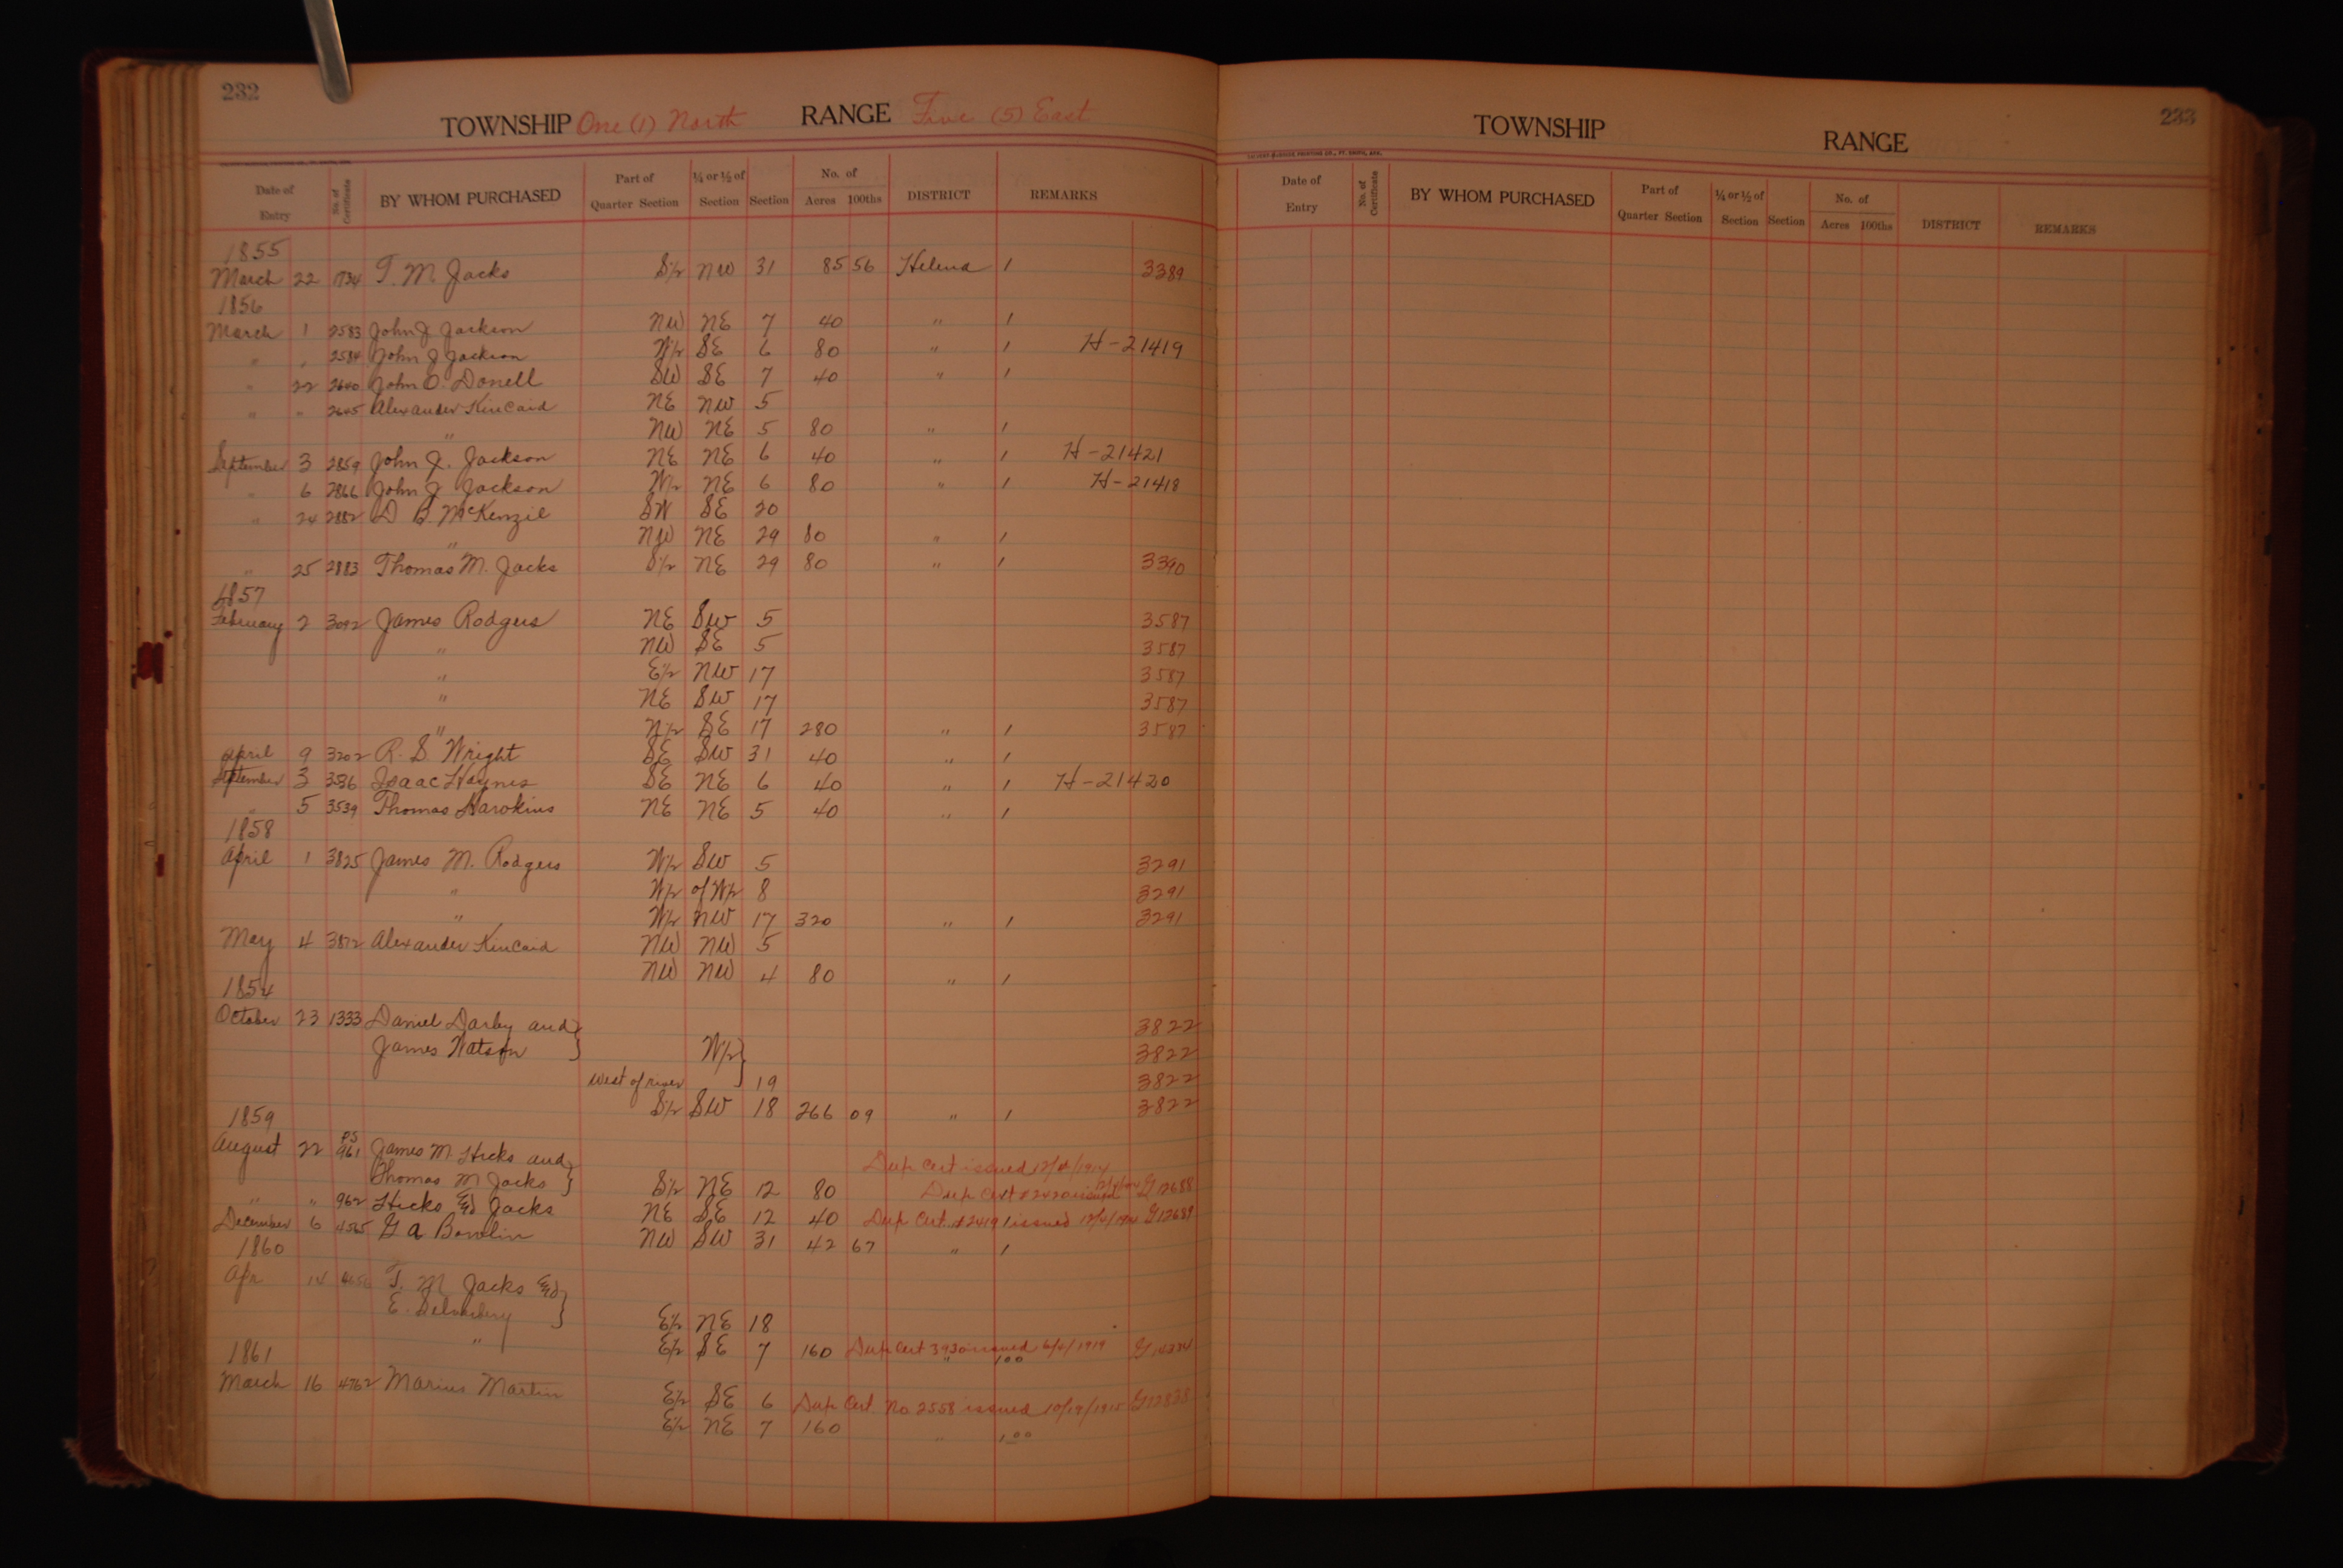 232
TOWNSHIP One (1) North RANGE Five (5) East
Date of Entry No. of Certificate BY WHOM PURCHASED Part of Quarter Section ¼ or ½ of Section Section No. of Acres 100ths DISTRICT REMARKS
1855
March 22 1734 T. M. Jacks S½ NW 31 85 56 Helena 1 3389
1856
March 1 2583 John J Jackson NW NE 7 40 " 1
" " 2584 John J Jackson W½ SE 6 80 " 1 H-21419
" 22 2640 John O. Donell SW SE 7 40 " 1
" " 2645 Alexander Kincaid NE NW 5
" NW NE 5 80 " 1
September 3 2859 John J. Jackson NE NE 6 40 " 1 H-21421
" 6 2866 John J Jackson W½ NE 6 80 " 1 H-21418
" 24 2882 D B McKenzie SW SE 20
" NW NE 29 80 " 1
" 25 2883 Thomas M. Jacks S½ NE 29 80 " 1 3390
1857
February 2 3092 James Rodgers NE SW 5 3587
" NW SE 5 3587
" E½ NW 17 3587
" NE SW 17 3587
" N½ SE 17 280 " 1 3587
April 9 3202 R. S. Wright SE SW 31 40 " 1
September 3 Isaac Haynes SE NE 6 40 " 1 H-21420
" 5 3539 Thomas NE NE 5 40 " 1
1858
April 1 3825 James M. Rodgers W½ SW 5 3291
" W½ of W½ 8 3291
" W½ NW 17 320 " 1 3291
May 4 3872 Alexander Kincaid NW NW 5
NW NW 4 80 " 1
1854
October 23 1333 Daniel Darby and 3822
James Watson W½ 3822
West of river 19 3822
S½ SW 18 266 09 " 1 3822
1859
August 22 PS 961 James M. Hicks and Dup Cert issued 12/4/1914
Thomas M Jacks S½ NE 12 80 Dup Cert #2420 issued G12688
" " 962 Hicks & Jacks NE SE 12 40 Dup Cert. #2419 issued 12/4/1914 G12689
December 6 4565 G A Bowlin NW SW 31 42 67 " 1
1860
Apr 14 T. M Jacks &
E. E½ NE 18
" E½ SE 7 160 Dup Cert 3930 issued 6/2/1919 " 1.00
1861
March 16 4762 Marius Martin E½ SE 6 Dup Cert No 2558 issued 10/19/1915 G12838
E½ NE 7 160 " 1.00
233
TOWNSHIP RANGE
CALVERT-McBRIDE PRINTING CO., FT. SMITH, ARK.
Date of Entry No. of Certificate BY WHOM PURCHASED Part of Quarter Section ¼ or ½ of Section Section No. of Acres 100ths DISTRICT REMARKS